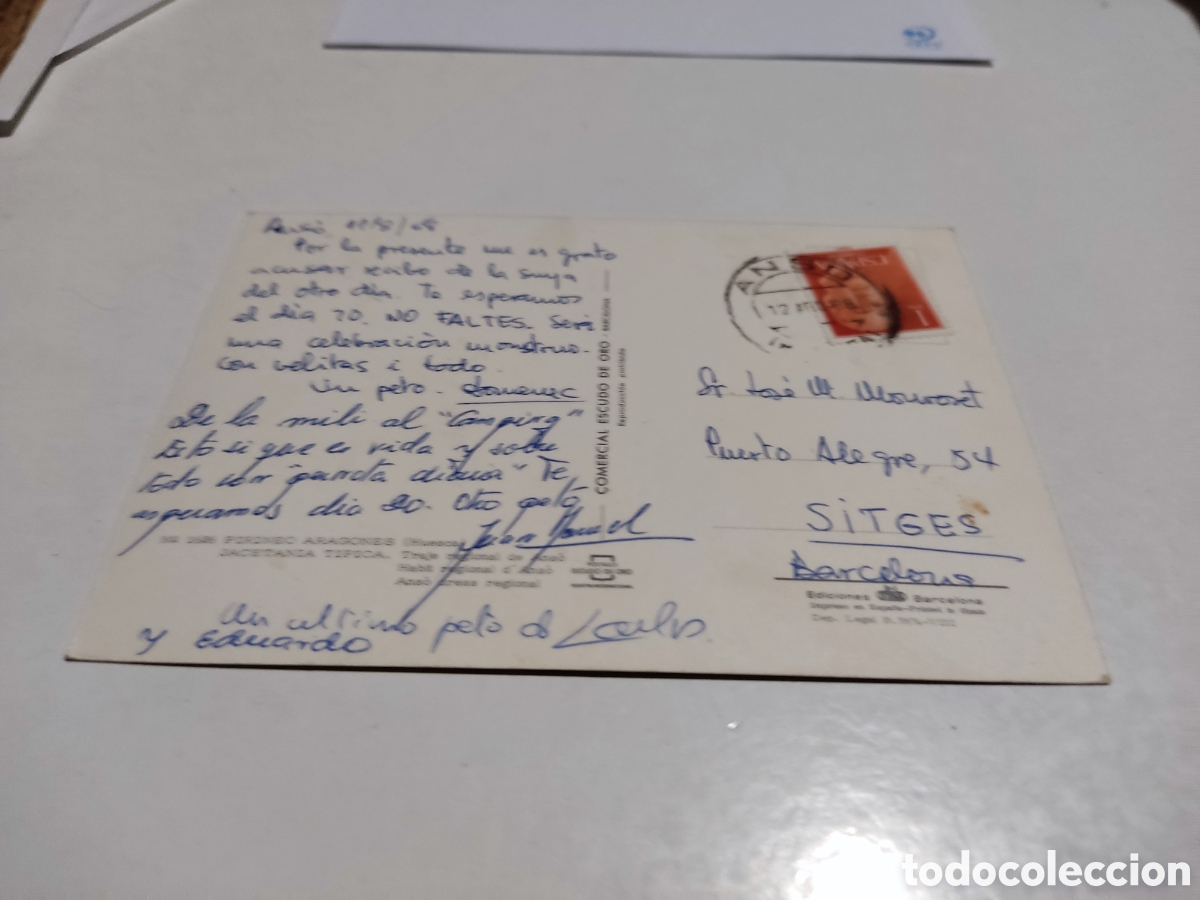 Ansó
Por la presente me es grato
acusar recibo de la suya
del otro día. Te esperamos
el día 20. NO FALTES. Será
una celebración monstruo.
Con velitas i todo.
Un petó. Domenec
De la mili al "Camping"
Esto si que es vida y sobre
todo con Te
esperamos dia 20. Otro petó
Juan Manuel
PIRINEO ARAGONES (Huesca)
JACETANIA TIPICA. Traje regional de Ansó
Habit regional d'Ansó
Ansó dress regional
Un ultimo petó de Carlos
y Eduardo
COMERCIAL ESCUDO DE ORO - BARCELONA
Reproducción prohibida
ESCUDO DE ORO
ANSO
12
ESPAÑA
1
Sr. José M.
Puerto Alegre, 54
SITGES
Barcelona
Ediciones Barcelona
Impreso en España-Printed in Spain
Dep. Legal B.
todocoleccion